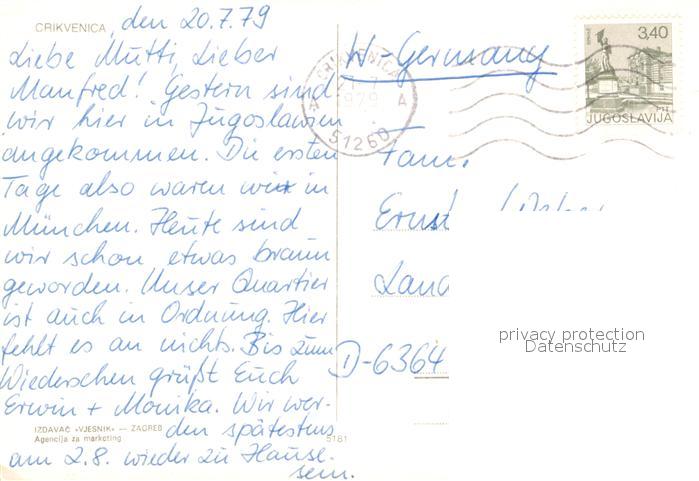 CRIKVENICA, den 20.7.79
Liebe Mutti, Lieber
Manfred! Gestern sind
wir hier in Jugoslawien
angekommen. Die ersten
Tage also waren wir in
München. Heute sind
wir schon etwas braun
geworden. Unser Quartier
ist auch in Ordnung. Hier
fehlt es an nichts. Bis zum
Wiedersehen grüßt Euch
Erwin + Monika. Wir wer-
den spätestens
am 2.8. wieder zu Hause
sein.
IZDAVAČ «VJESNIK» — ZAGREB
Agencija za marketing
5181
W-Germany
CRIKVENICA
21-7
1979
A A
51260
3,40
JUGOSLAVIJA
Fam.
Ernst
Land
D-6364
privacy protection
Datenschutz